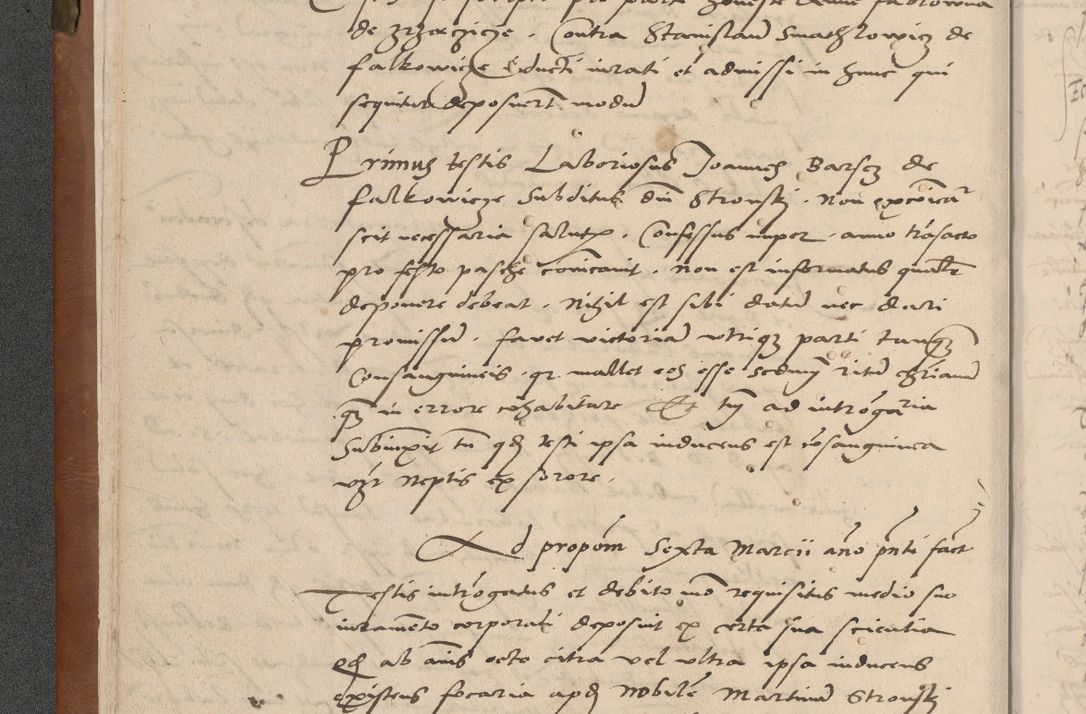 de Zrzeczicze . Contra Stanislaum Smathlowicz de
falkowicze Educti iurati et admissi in hunc qui
sequitur deposuerunt modum
Primus testis Laboriosus Joannes Barscz de
falkowicze Subditus dni Stronskj . Non excoicat
scit necessaria salutis . Confessus nuper . anno trasacto
pro festo pasche coicauit . Non est informatus qualr
deponere debeat . Nihil est sibi datum nec dari
promissum . fauet victoriam vtriqz parti tanqz
Consanguineis . qr mallet eos esse secundum ritum chrianum
qz in errore cohabitare tn ad introgaria
Subiunxit tn qd testi ipsa inducens est cosanguinea
vizt Neptis ex sorore .
Ad propom Sexta Marcii anno pnti fact
Testis introgatus et debito mo requisitus medio suo
iuramento corporali deposuit ex certa sua scientia
qd ab annis octo citra vel vltra ipsa inducens
existens focaria apd Nobilem Martinum Stronskj